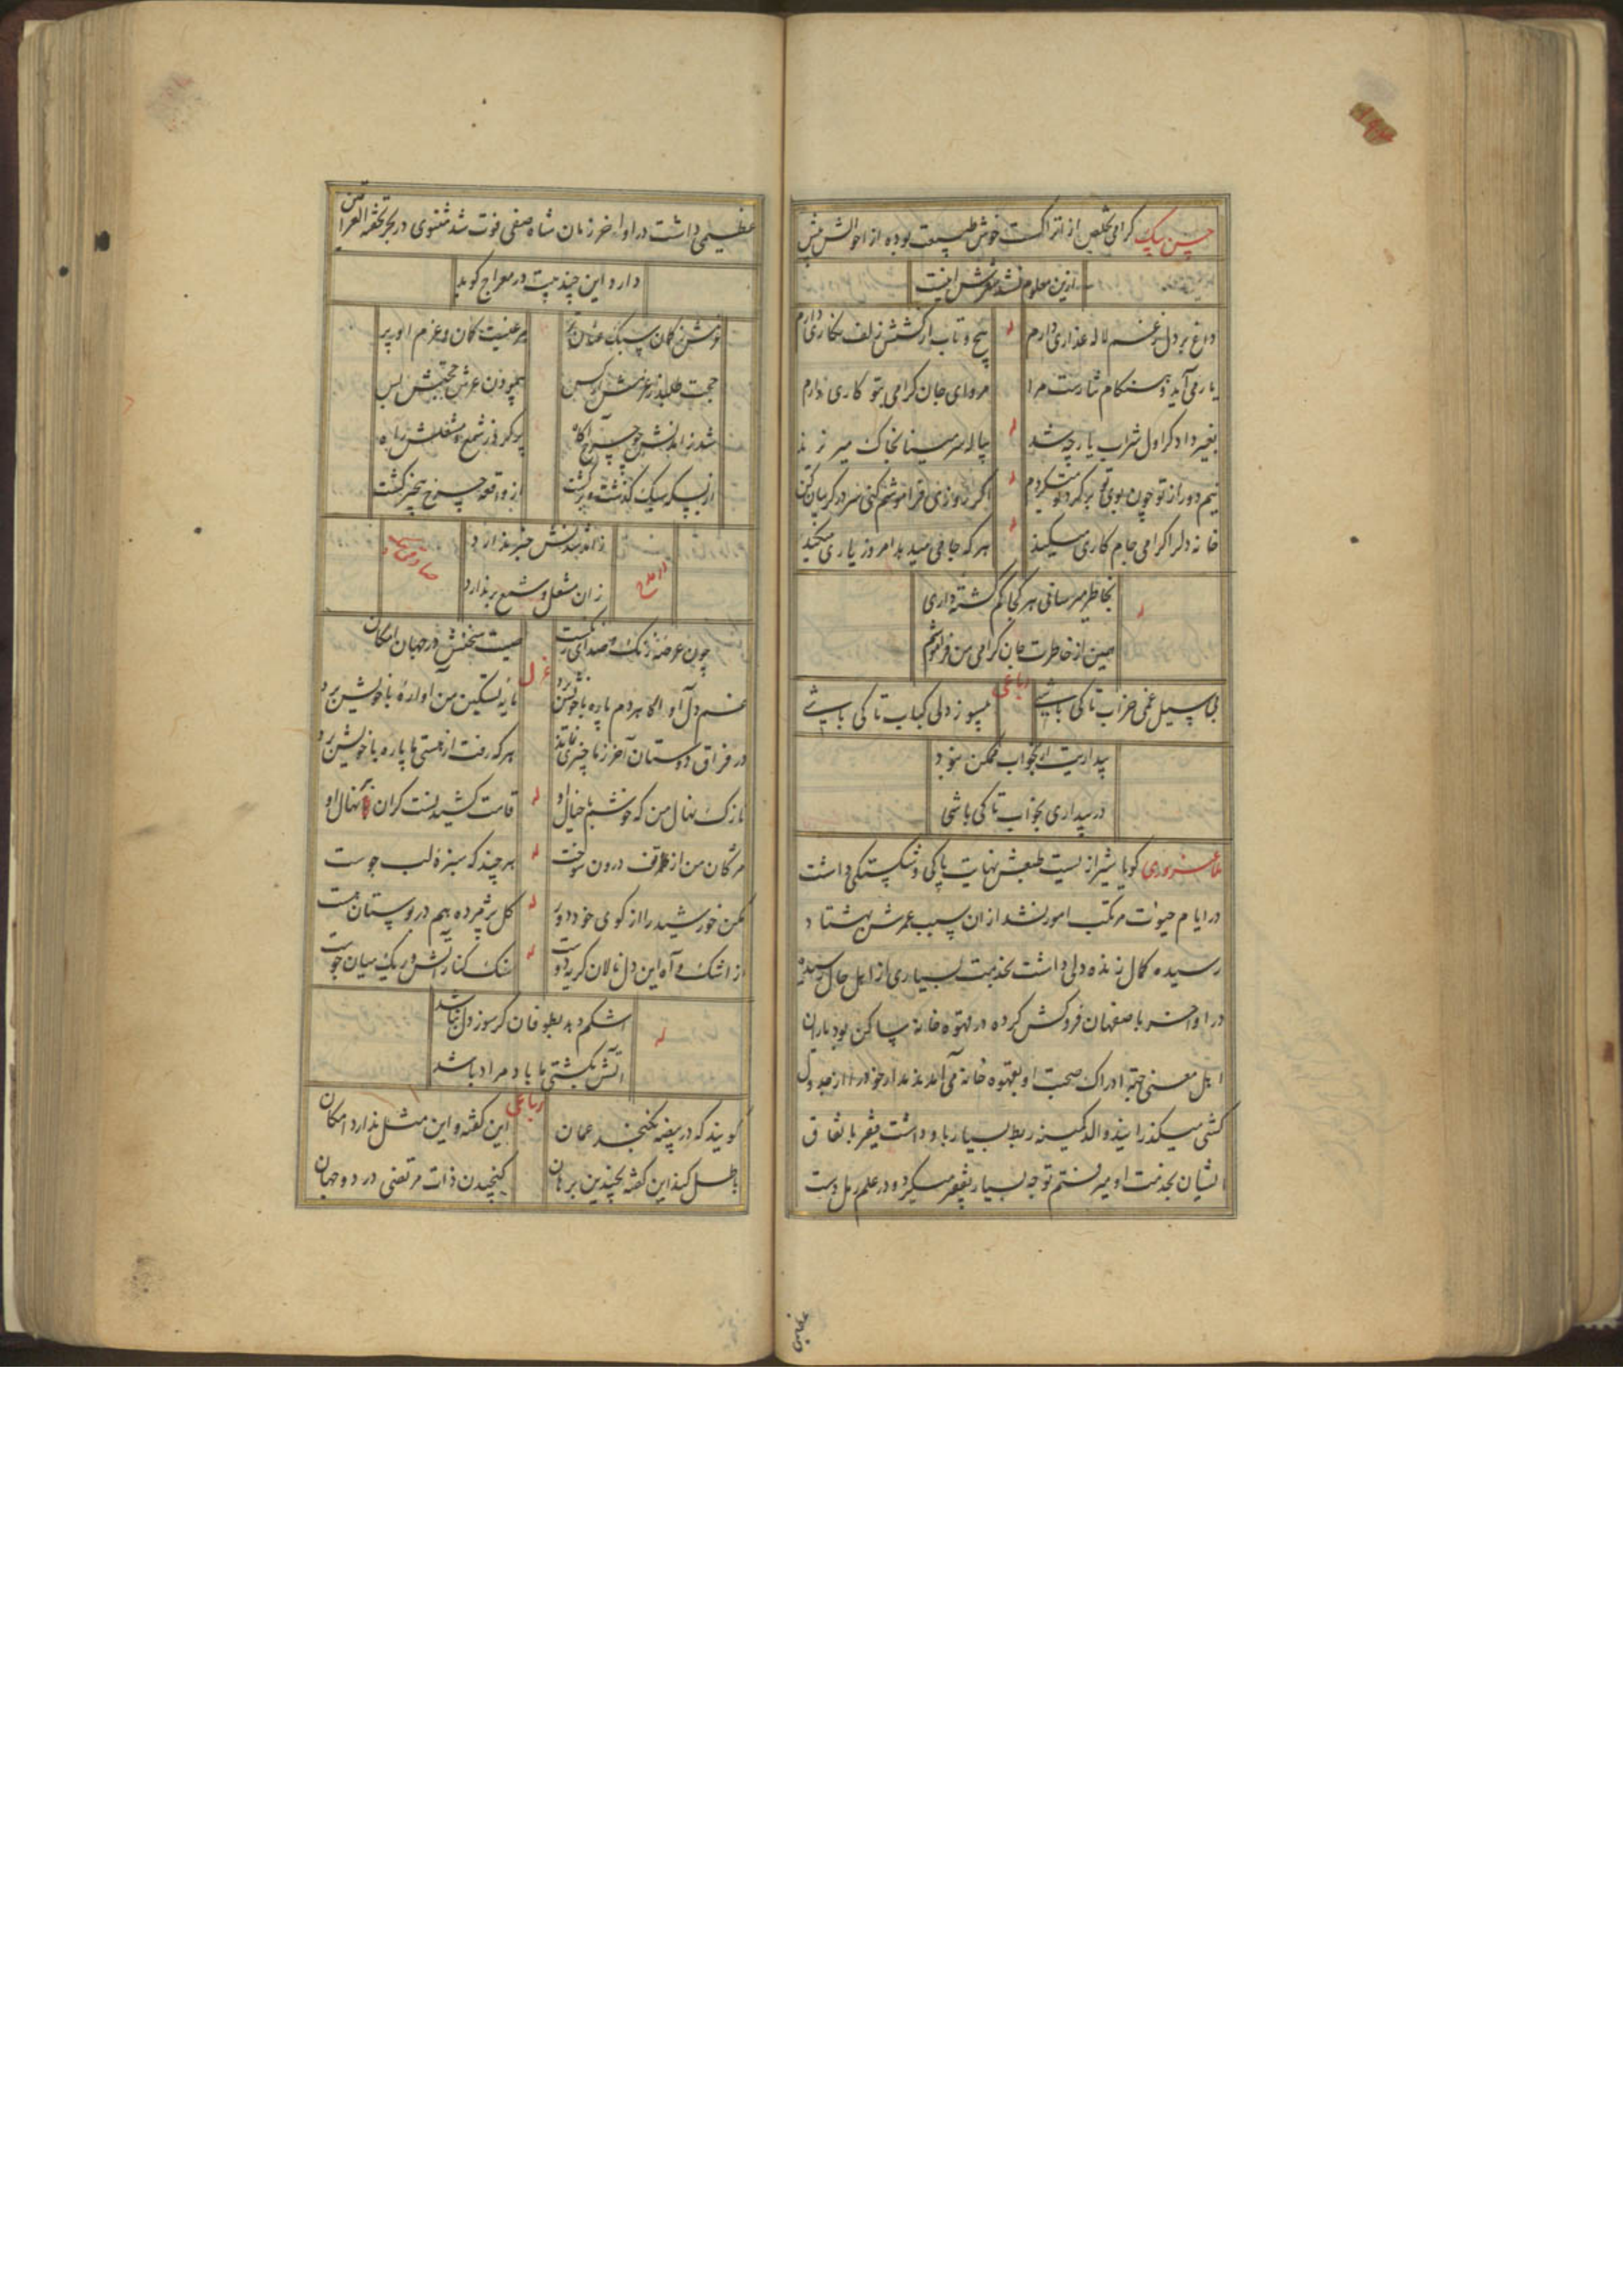 حسن بیک کرامی تخلص از اتراکست خوش طبیعت بوده از احوالش بیش
ازین معلوم نشد شعرش اینست
داغ بر دل ز غم لاله عذاری دارم
پیچ و تاب از کشش زلف نکاری دارم
یار می آید و هنکام نثارست مرا
مرو ای جان کرامی بتو کاری دارم
بغیر داد کر اول شراب یار چه شد
پیاله سر مینا بخاک میریزند
نیم دور از تو چون بوی تو بر کرد تو میکردم
اکر روزی فراموشم کنی سر در کریبان کن
خانه دلرا کرامی جام کاری میکند
هر که جامی میدهد امروز یاری میکند
بخاطر میرسانی هر کجا کم کشته داری
همین از خاطرت جان کرامی من فراموشم
رباعی
بی سیل غمی خراب تا کی باشی
بیسوز دلی کباب تا کی باشی
بیداریت از بخواب ممکن نبود
در بیداری بخواب تا کی باشی
کویا شیرازیست طبعش نهایت پاکی و شکستکی داشت
در ایام حیوت مرتکب امور نشد از آن سبب عمرش بهشتاد
رسیده کمال زنده دلی داشت بخدمت بسیاری از اهل حال رسیده
در اواخر باصفهان فروکش کرده در قهوه خانه ساکن بود یاران
اهل معنی جهة ادراک صحبت او بقهوه خانه می آمدند مدار خود را از جدول
کشی میکذرانید والد کمینه ربط بسیار باو داشت فقیر باتفاق
ایشان بخدمت او میرفتم توجه بسیار بفقیر میکرد و در علم رمل دست
عظیمی داشت در اواخر زمان شاه صفی فوت شد مثنوی در بحر تحفة العراقین
دارد این چند بیت در معراج کوید
حجت طلبد ز عرش ار کس
پیمودن عرش حجتش بس
شد زآمدنش چو چرخ آکاه
پر کرد ز شمع و مشعلش راه
از بسکه سبک کذشت و برکشت
از واقعه چرخ بیخبر کشت
زآمد شدنش خبر ندارد
زان مشعل و شمع بر ندارد
صیت سخنش در جهان امکان
غزل
غم دل آواره هر دم پاره با خویش برد
تا به تسکین من آواره با خویش برد
در فراق دوستان آخر ز ما چیزی نماند
هر که رفت از هستی ما پاره با خویش برد
نازک نهال من که خوشم با خیال او
قامت کشیدنست کران بر نهال او
مژکان من از تف درون سوخت
هر چند که سبزه لب جوست
مکن خورشید را از کوی خود دور
کل پژمرده هم در بوستان هست
از اشک و آه این دل نالان کر بدوست
سنک کنار آتش و ریک میان جوست
اشکم دهد بطوفان کر سوز دل نباشد
آتش بکشتی ما باد مراد باشد
رباعی
کویند که در بیضه نکنجد عمان
این کفته و این مثل ندارد امکان
باطل کند این کفته بچندین برهان
کنجیدن ذات مرتضی در دو جهان